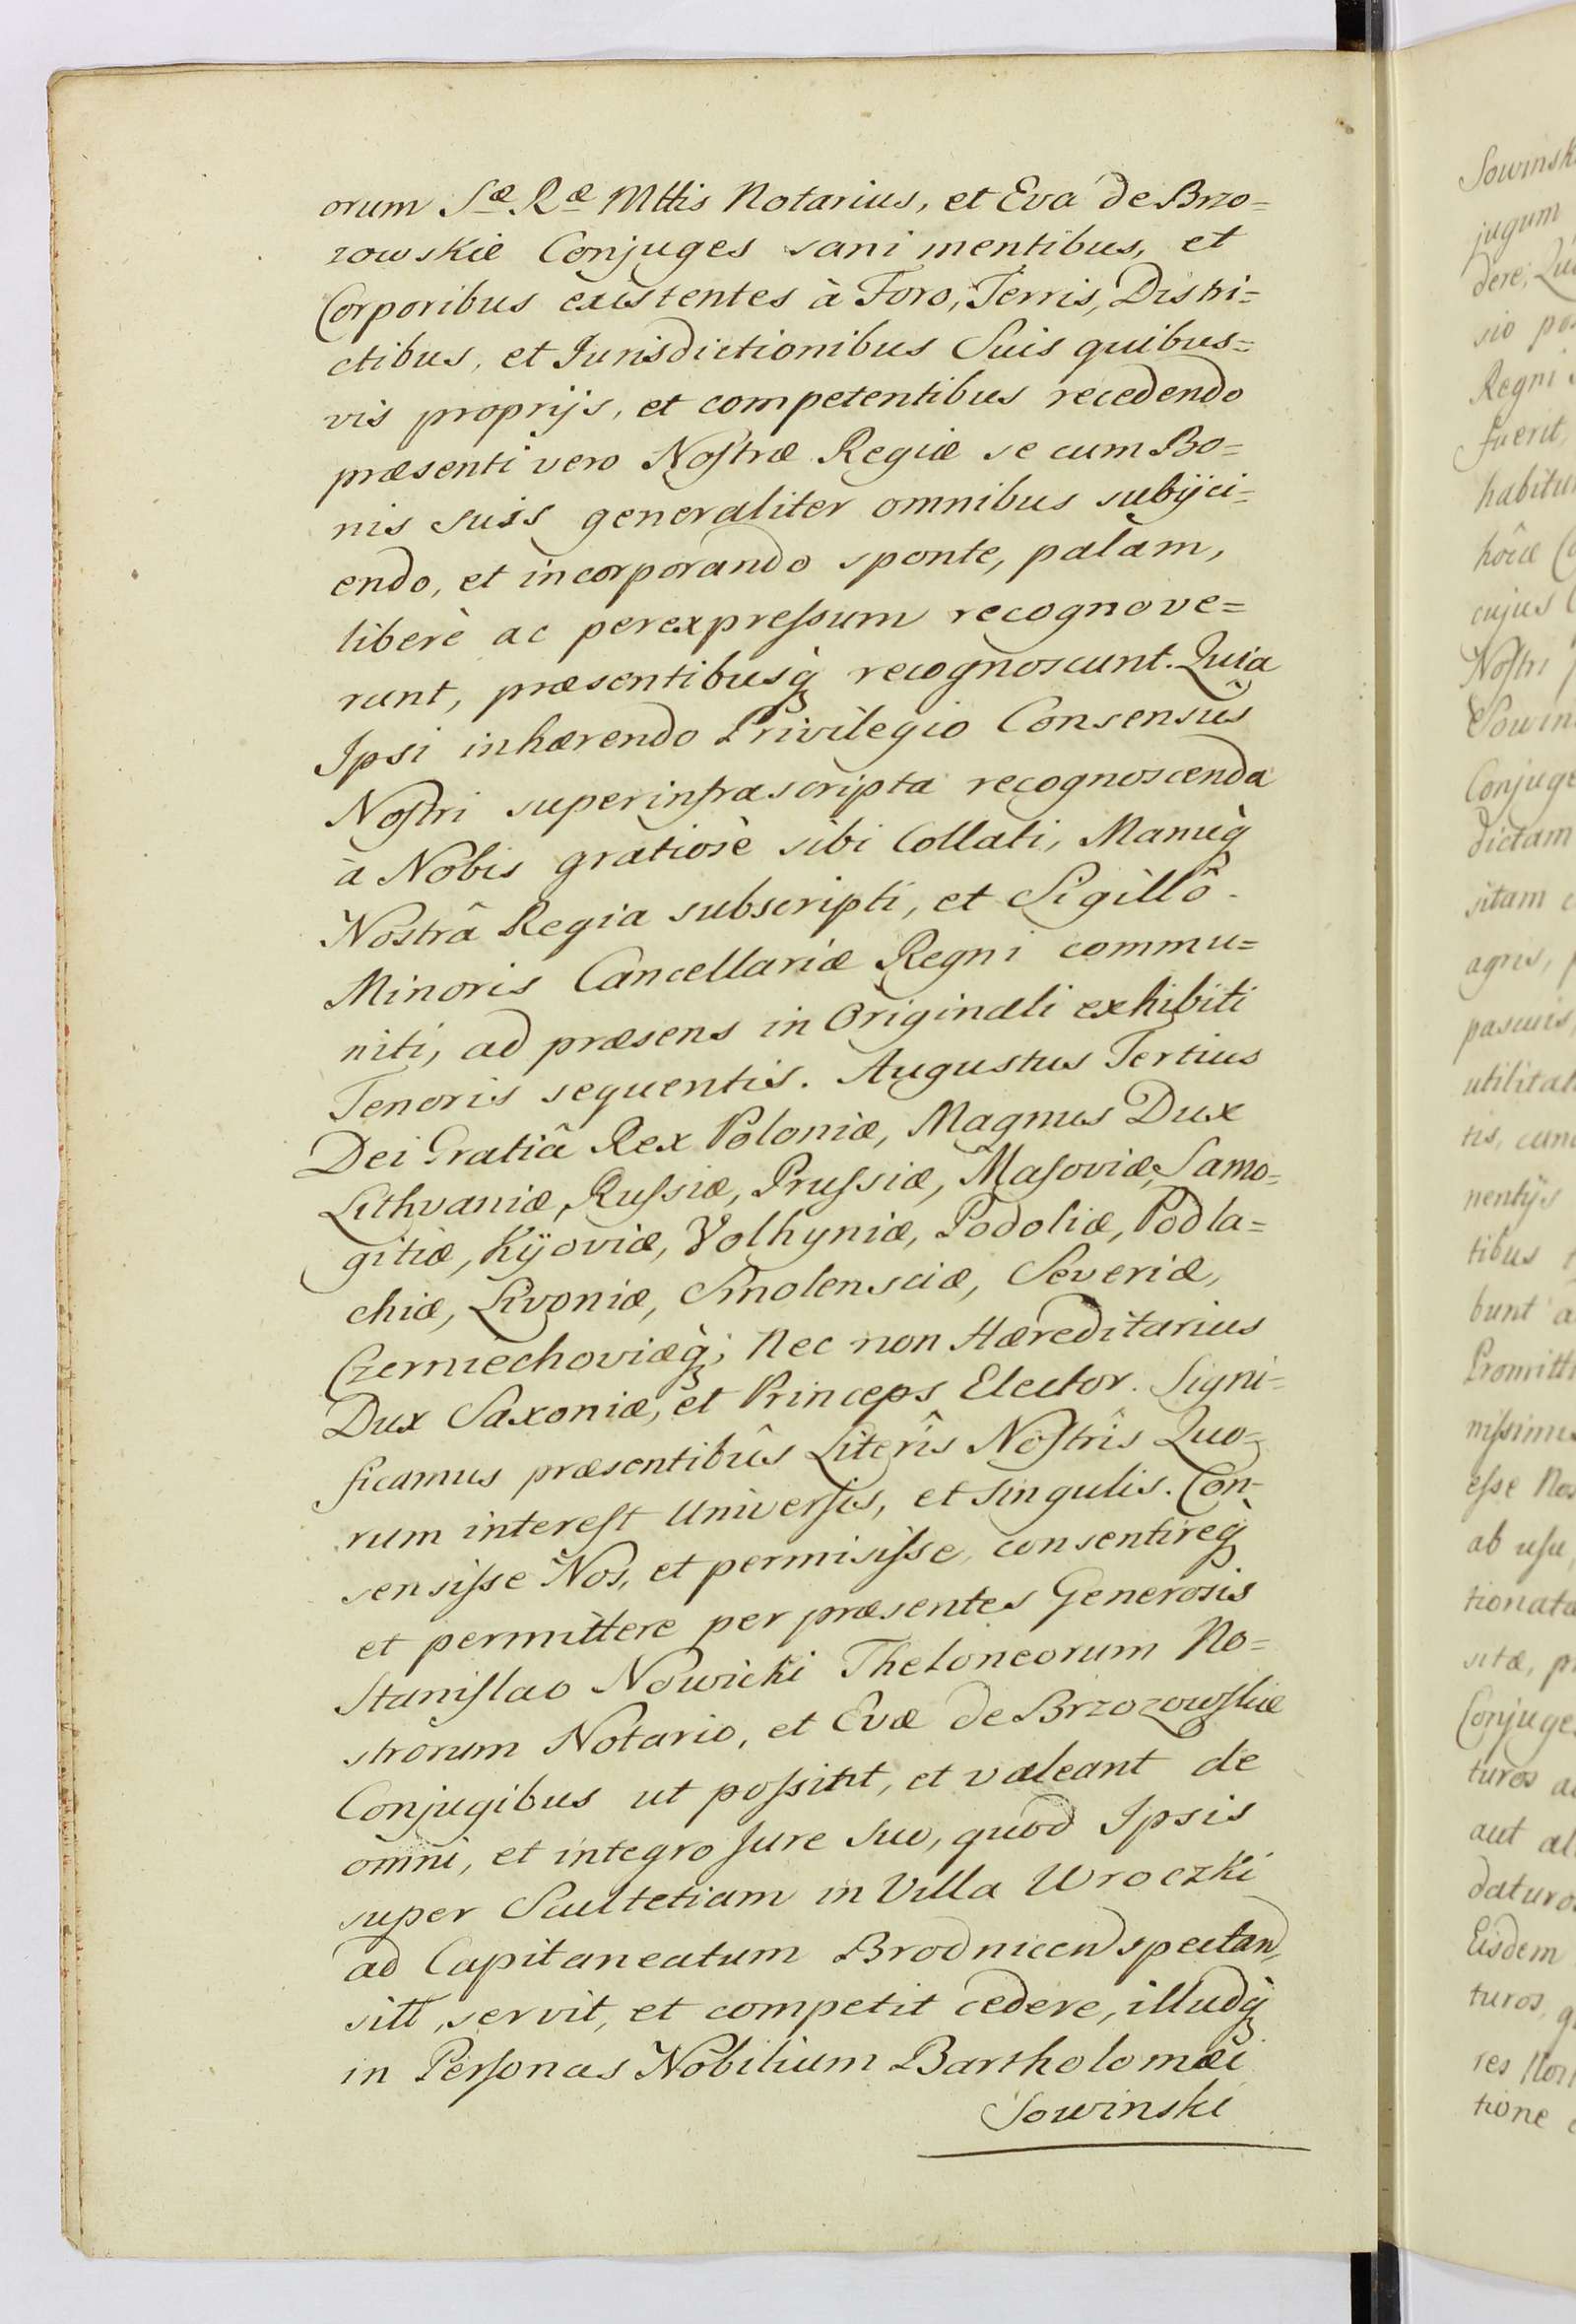 orum Sæ Ræ Mttis Notarius, et Eva de Brzo=
zowskie Conjuges sani mentibus, et
Corporibus existentes à Foro, Terris, Distri=
ctibus, et Jurisdictionibus Suis quibus=
vis proprijs, et competentibus recedendo
præsenti vero Noſtræ Regiæ se cum Bo=
nis suis generaliter omnibus subijci=
endo, et incorporando sponte, palàm,
liberè ac perexpreſsum recognove=
runt, præsentibusq́; recognoscunt. Quia
Ipsi inhærendo Privilegio Consensûs
Noſtri superinfrascripta recognoscenda
à Nobis gratiosè sibi Collati, Manuq́;
Nostrâ Regia subscripti, et Sigillô
Minoris Cancellariæ Regni commu=
niti, ad præsens in Originali exhibiti
Tenoris sequentis. Augustus Tertius
Dei Gratiâ Rex Poloniæ, Magnus Dux
Lithvaniæ, Ruſsiæ, Pruſsiæ, Maſoviæ, Samo=
gitiæ, Kÿoviæ, Volhyniæ, Podoliæ, Podla=
chiæ, Livoniæ, Smolensciæ, Severiæ,
Czerniechoviæq́; Nec non Hæreditarius
Dux Saxoniæ, et Princeps Elector. Signi=
ficamus præsentibûs Literîs Noſtrîs Quo=
rum intereſt Univerſis, et singulis. Con=
sensiſse Nos, et permisiſse, consentireq́;
et permittere per præsentes Generosis
Staniſlao Nowicki Theloneorum No=
strorum Notario, et Evæ de Brzozowſkie
Conjugibus ut poſsint, et valeant de
omni, et integro Jure suo, quod Ipsis
super Scultetiam in Villa Wroczki
ad Capitaneatum Brodnicen spectan,
sitt, servit, et competit cedere, illudq́;
in Perſonas Nobilium Bartholomæi
Sowinski
Sowinsk
jugum
dere;
sio
Regni
fuerit,
hôiæ
cujus
Noſtri
Conjuge
dictam
sitam
agris,
pascuis,
utilitat
tis,
nentijs
tibus
bunt
Promitti
eſse Nos
ab usu
tionata
sitæ,
Conjuge
turos
aut al
daturo
Eisdem
turos,
tione